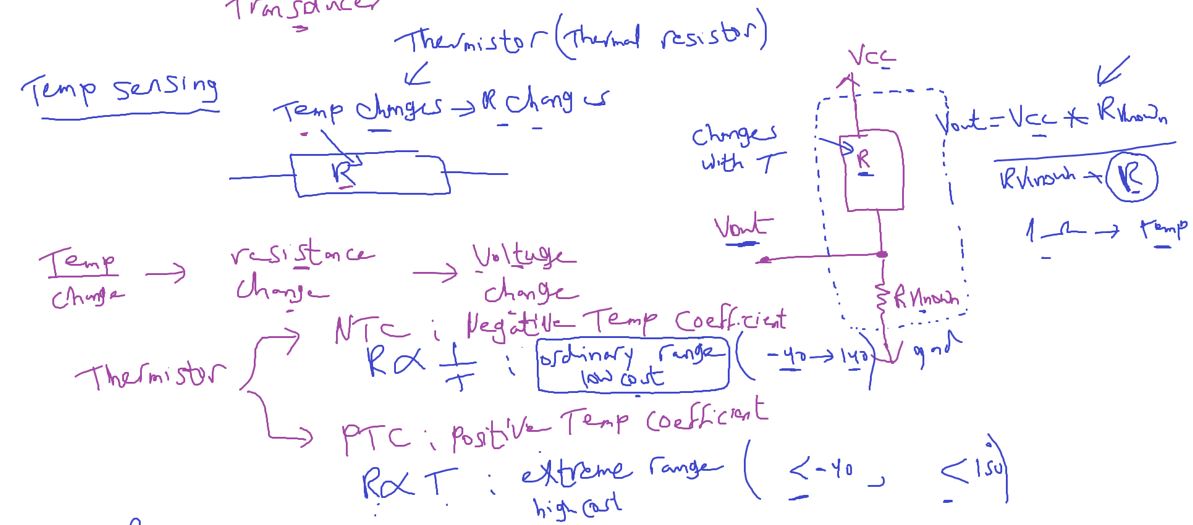 Transducer
Thermistor (Thermal resistor)
Temp sensing
Temp changes → R changes
R
Vcc
changes
with T
R
Vout = Vcc * RKnown
RKnown + R
1 Ω → temp
Vout
RKnown
gnd
Temp
change
→ resistance
change
→ Voltage
change
Thermistor
NTC : Negative Temp Coefficient
R ∝ 1/T : ordinary range
low cost
(-40 → 140)
PTC : Positive Temp Coefficient
R ∝ T : extreme range ( < -40 , < 150)
high cost